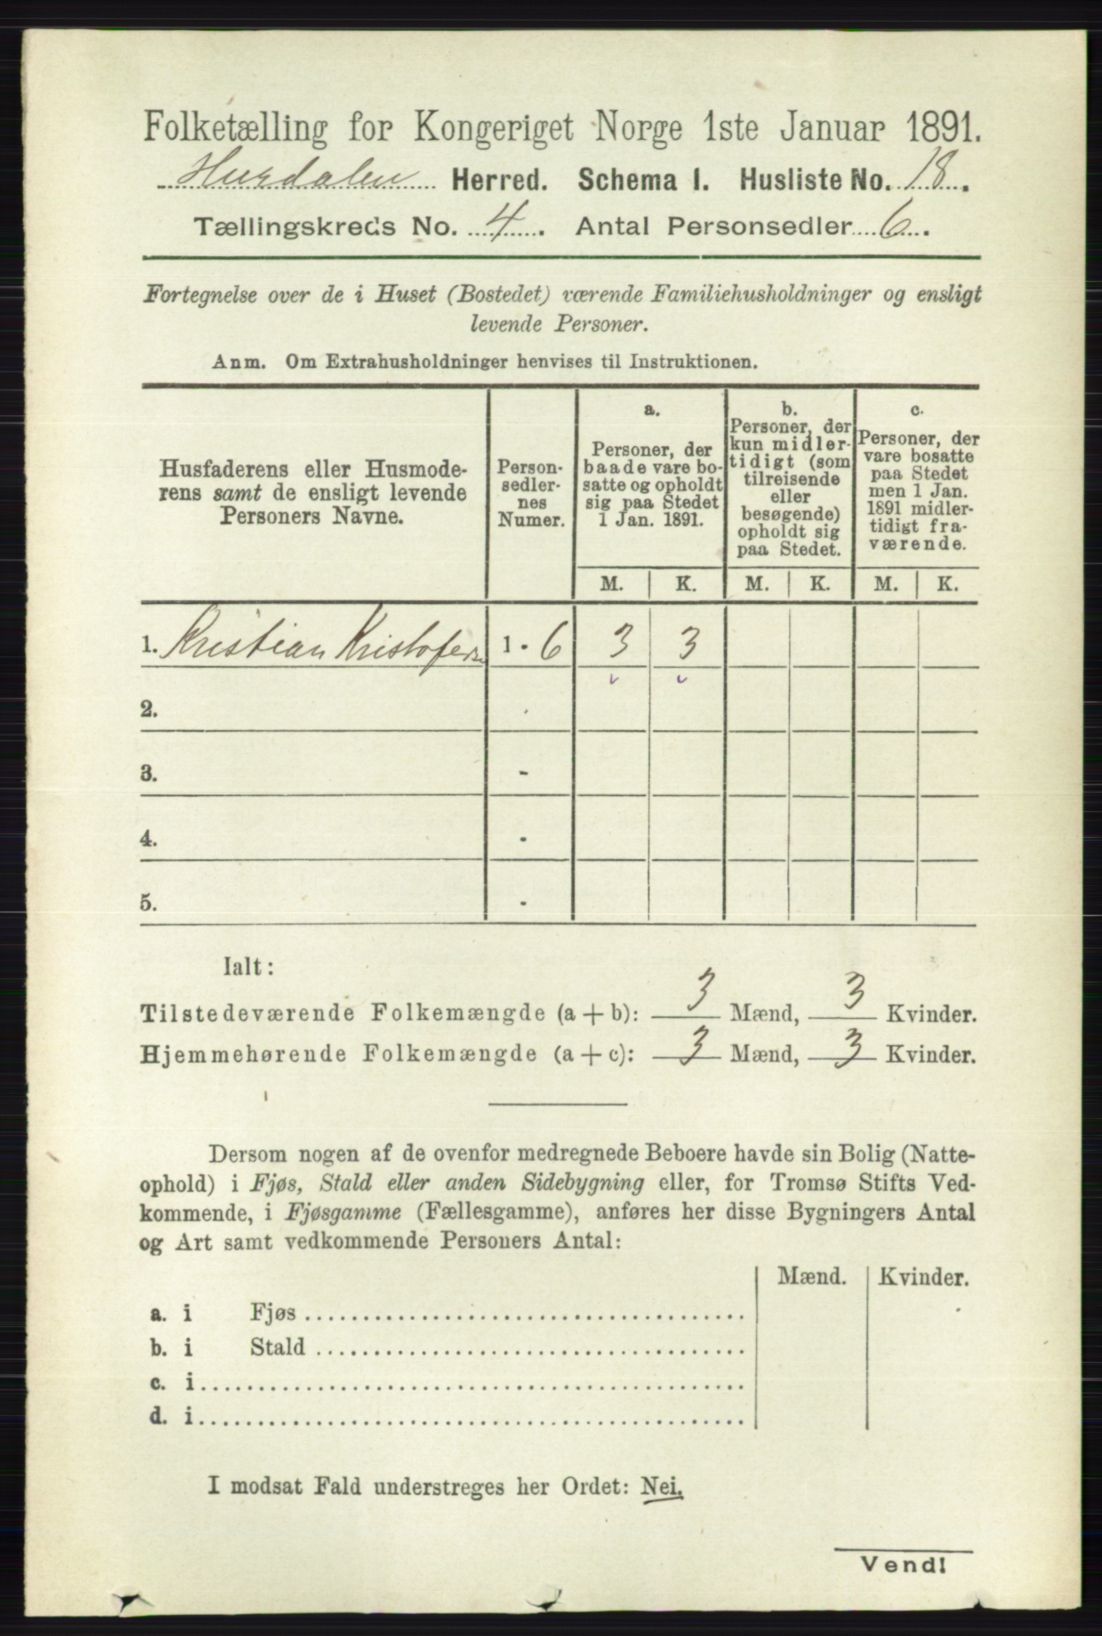 Folketælling for Kongeriget Norge 1ste Januar 1891.
Hurdalen Herred. Schema I. Husliste No. 18.
Tællingskreds No. 4. Antal Personsedler 6.
Fortegnelse over de i Huset (Bostedet) værende Familiehusholdninger og ensligt
levende Personer.
Anm. Om Extrahusholdninger henvises til Instruktionen.
Husfaderens eller Husmode-
rens samt de ensligt levende
Personers Navne.
Person-
sedler-
nes
Numer.
a.
Personer, der
baade vare bo-
satte og opholdt
sig paa Stedet
1 Jan. 1891.
b.
Personer, der
kun midler-
tidigt (som
tilreisende
eller
besøgende)
opholdt sig
paa Stedet.
c.
Personer, der
vare bosatte
paa Stedet
men 1 Jan.
1891 midler-
tidigt fra-
værende.
M. K. M. K. M. K.
1. Kristian Kristofersn 1 - 6 3 3
2.
3. -
4. -
5. -
Ialt:
Tilstedeværende Folkemængde (a + b): 3 Mænd, 3 Kvinder.
Hjemmehørende Folkemængde (a + c): 3 Mænd, 3 Kvinder.
Dersom nogen af de ovenfor medregnede Beboere havde sin Bolig (Natte-
ophold) i Fjøs, Stald eller anden Sidebygning eller, for Tromsø Stifts Ved-
kommende, i Fjøsgamme (Fællesgamme), anføres her disse Bygningers Antal
og Art samt vedkommende Personers Antal:
Mænd. Kvinder.
a. i Fjøs
b. i Stald
c. i
d. i
I modsat Fald understreges her Ordet: Nei.
Vend!